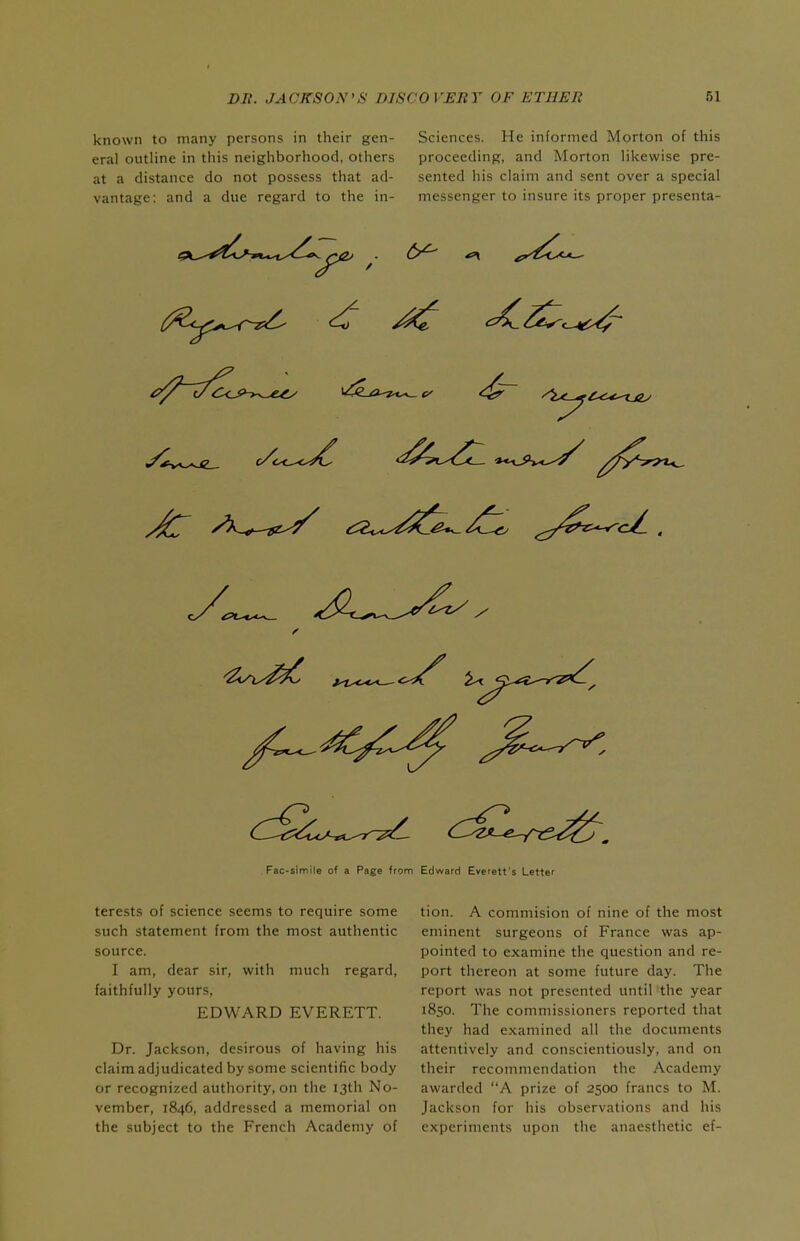 DR. JACKSON'S DISCOVERY OF ETHER 51
known to many persons in their gen-
eral outline in this neighborhood, others
at a distance do not possess that ad-
vantage: and a due regard to the in-
Sciences. He informed Morton of this
proceeding, and Morton likewise pre-
sented his claim and sent over a special
messenger to insure its proper presenta-
advantage; & a due
regard to the interests
of Science seems to require
some such statement from
the most authentic source.
I am, Dear Sir,
with much regard,
faithfully Yours,
Edward Everett.
Fac-simile of a Page from Edward Everett's Letter
terests of science seems to require some
such statement from the most authentic
source.
I am, dear sir, with much regard,
faithfully yours,
EDWARD EVERETT.
Dr. Jackson, desirous of having his
claim adjudicated by some scientific body
or recognized authority, on the 13th No-
vember, 1846, addressed a memorial on
the subject to the French Academy of
tion. A commision of nine of the most
eminent surgeons of France was ap-
pointed to examine the question and re-
port thereon at some future day. The
report was not presented until the year
1850. The commissioners reported that
they had examined all the documents
attentively and conscientiously, and on
their recommendation the Academy
awarded "A prize of 2500 francs to M.
Jackson for his observations and his
experiments upon the anaesthetic ef-